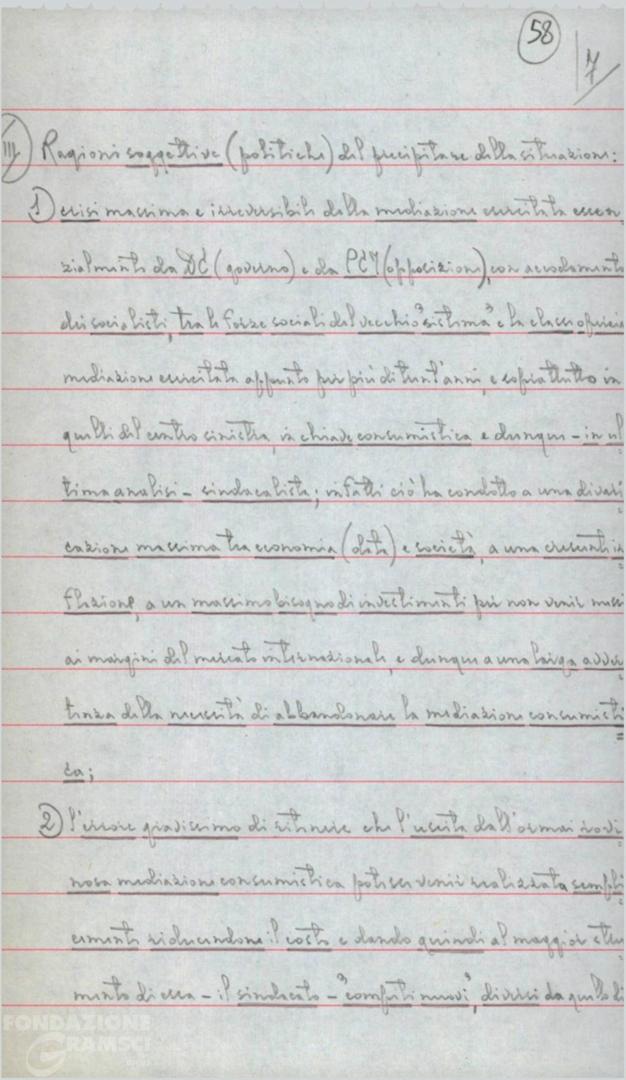 58
7
III) Ragioni soggettive (politiche) del precipitare della situazione:
1) crisi massima e irreversibile della mediazione esercitata essen-
zialmente da DC (governo) e da PCI (opposizione), con accodamento
dei socialisti, tra le forze sociali del vecchio "sistema" e la classe operaia
mediazione esercitata appunto per più di trent'anni, e soprattutto in
quelli del centro sinistra, in chiave consumistica e dunque – in ul
tima analisi – sindacalista; infatti ciò ha condotto a una divari
cazione massima tra economia (data) e società, a una crescente in
flazione, a un massimo bisogno di investimenti per non venir messi
ai margini del mercato internazionale, e dunque a una larga avver
tenza della necessità di abbandonare la mediazione consumisti
ca;
2) l'errore gravissimo di ritenere che l'uscita dall'ormai rovi
nosa mediazione consumistica potesse venir realizzata sempli
cemente riducendone il costo e dando quindi al maggior stru
mento di essa – il sindacato – "compiti nuovi", diversi da quello di
FONDAZIONE
GRAMSCI